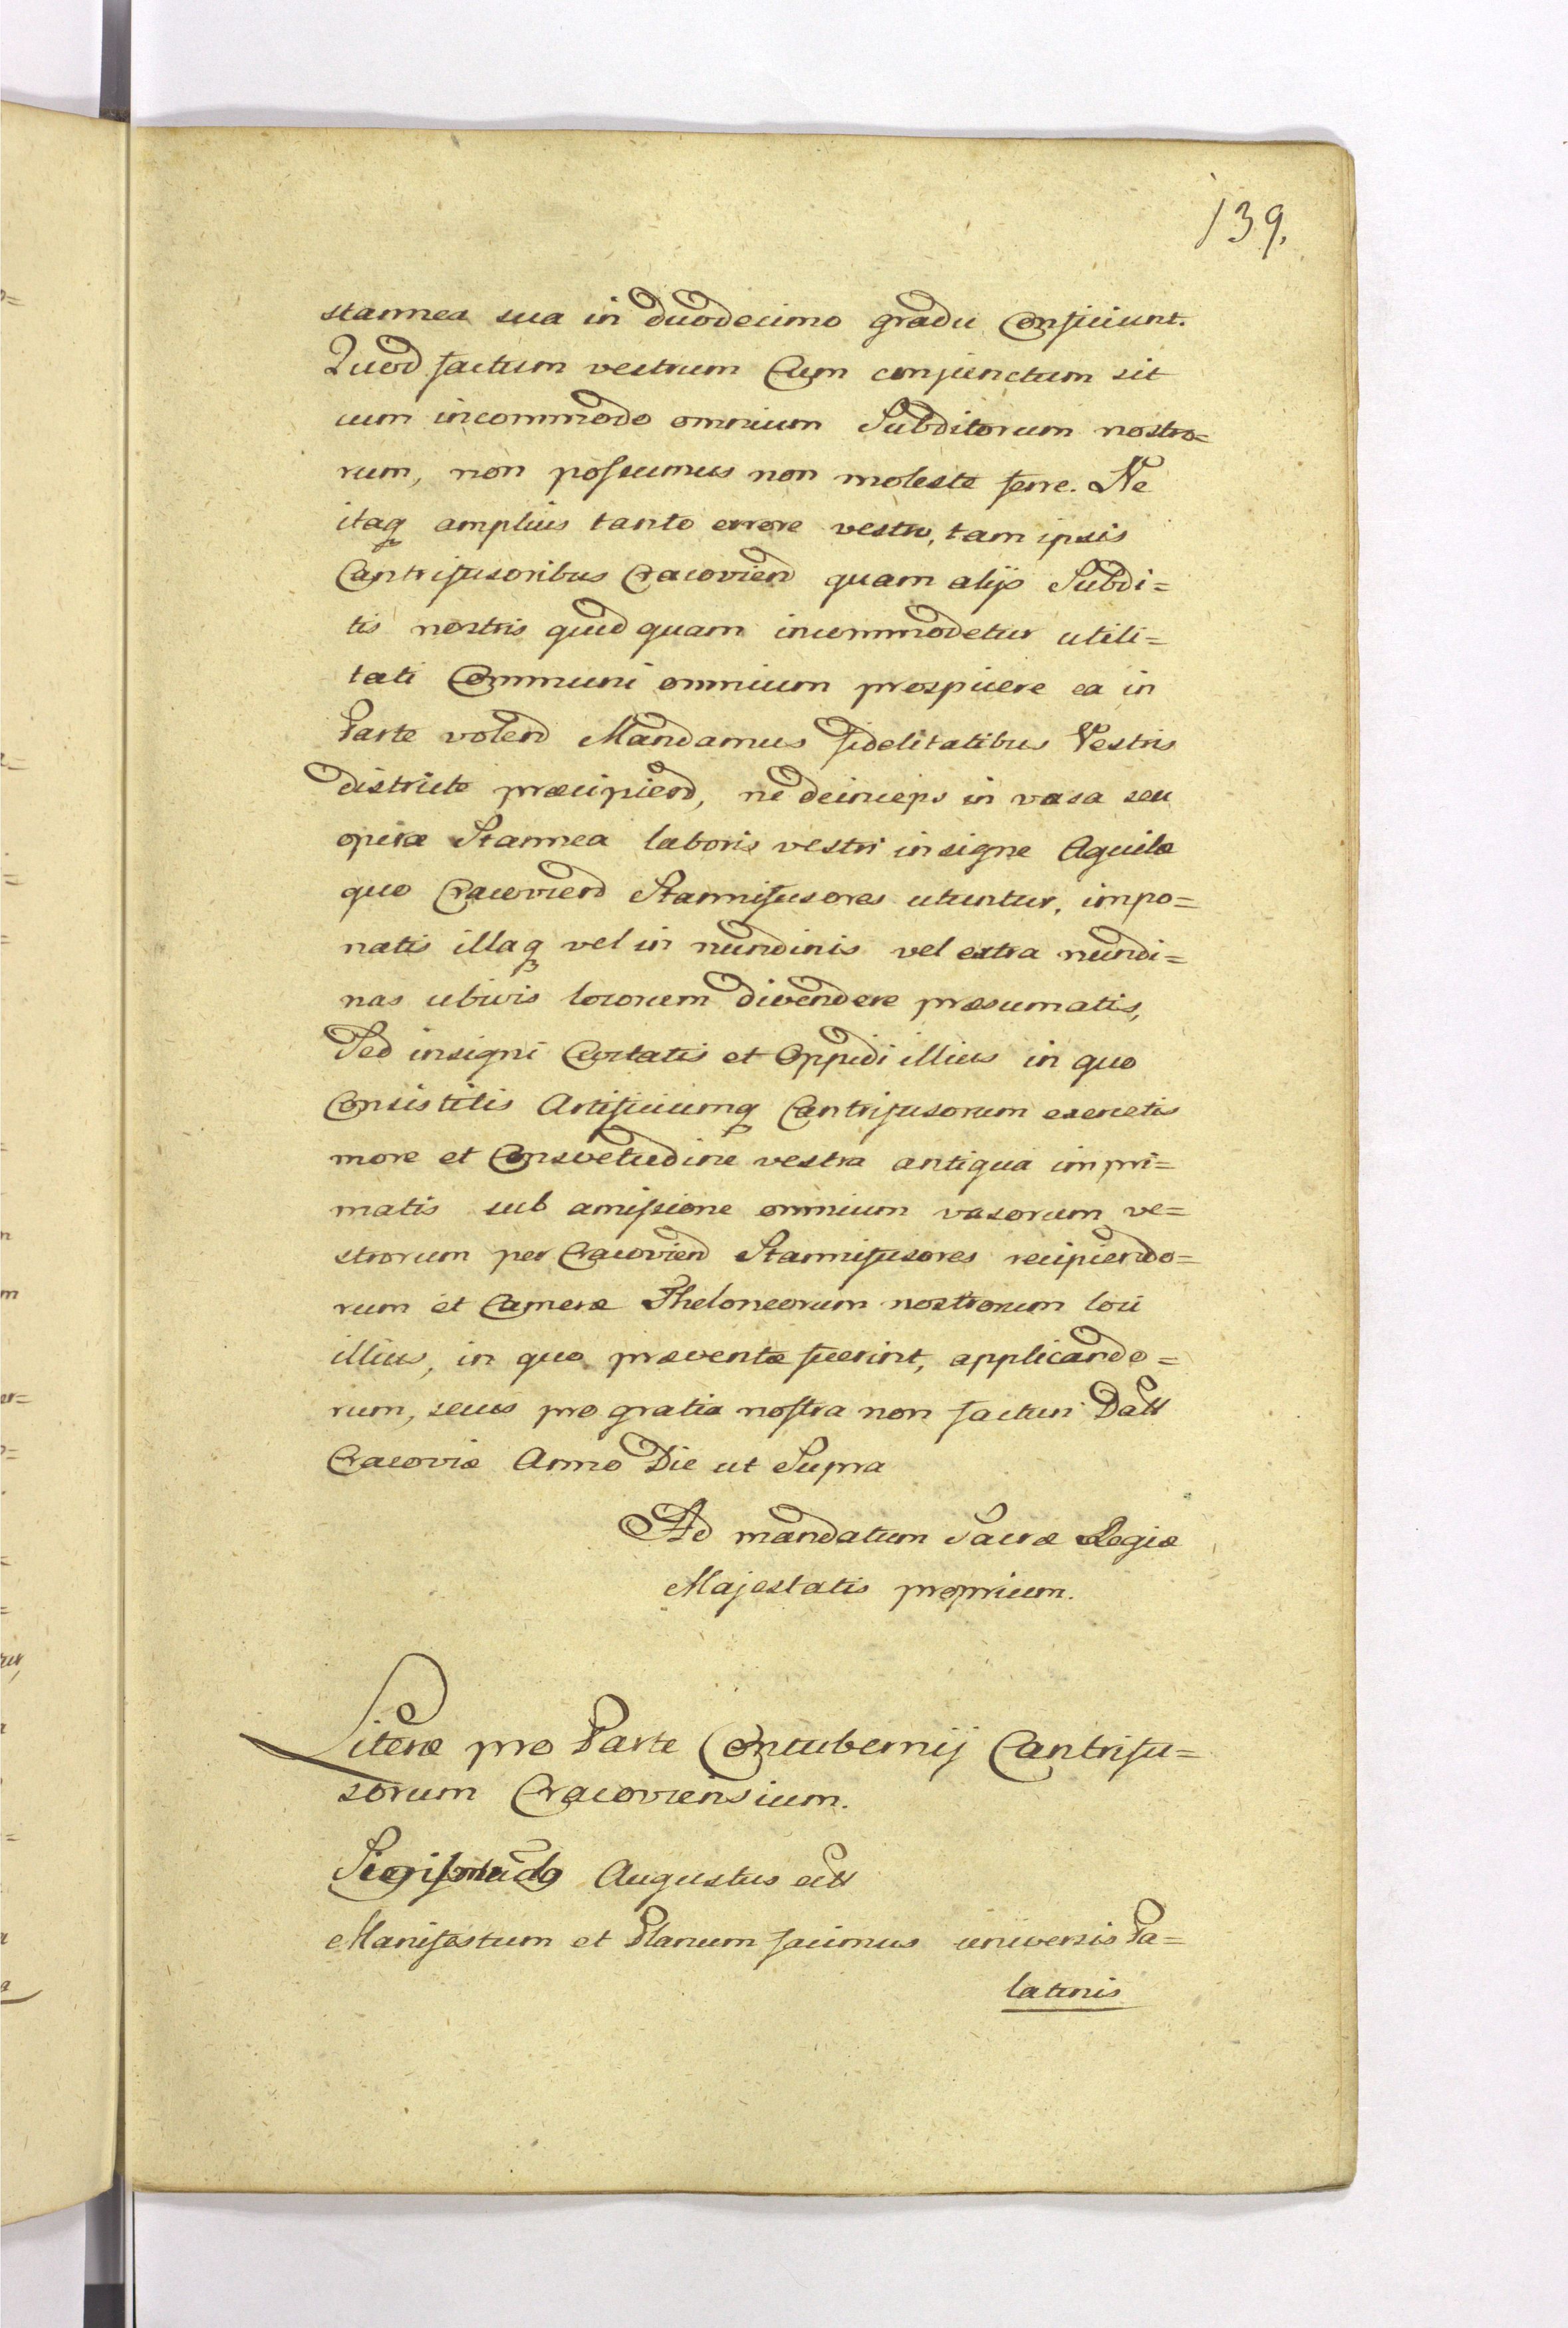 139.
stannea sua in duodecimo gradu Conficiunt.
Quod factum vestrum Cum conjunctum sit
cum incommodo omnium Subditorum nostro=
rum, non possumus non moleste ferre. Ne
itaq amplius tanto errore vestro, tam ipsis
Cantrifusoribus Cracovien quam alijs Subdi=
tis nostris quid quam incommodetur utili=
tati Communi omnium prospicere ea in
Parte volen Mandamus fidelitatibus Vestris
districte præcipien, ne deinceps in vasa seu
opera Stannea laboris vestri insigne Aquilæ
quo Cracovien Stannifusores utuntur, impo=
natis illaq vel in nundinis vel extra nundi=
nas ubivis locorum divendere præsumatis,
Sed insigni Civitatis et Oppidi illius in quo
Consistitis Artificiumq Cantrifusorum exercetis
more et Consvetudine vestra antiqua impri=
matis sub amissione omnium vasorum ve=
strorum per Cracovien Stannifusores recipiendo=
rum et Cameræ Theloneorum nostrorum loci
illius, in quo præventa fuerint, applicando=
rum, secus pro gratia nostra non facturi Datt
Cracoviæ Anno Die ut Supra
Ad mandatum Sacræ Regiæ
Majestatis proprium.
Literæ pro Parte Contubernij Cantrifu=
sorum Cracoviensium.
Sigismundg Augustus ett
Manifestum et Planum facimus universis Pa=
latinis